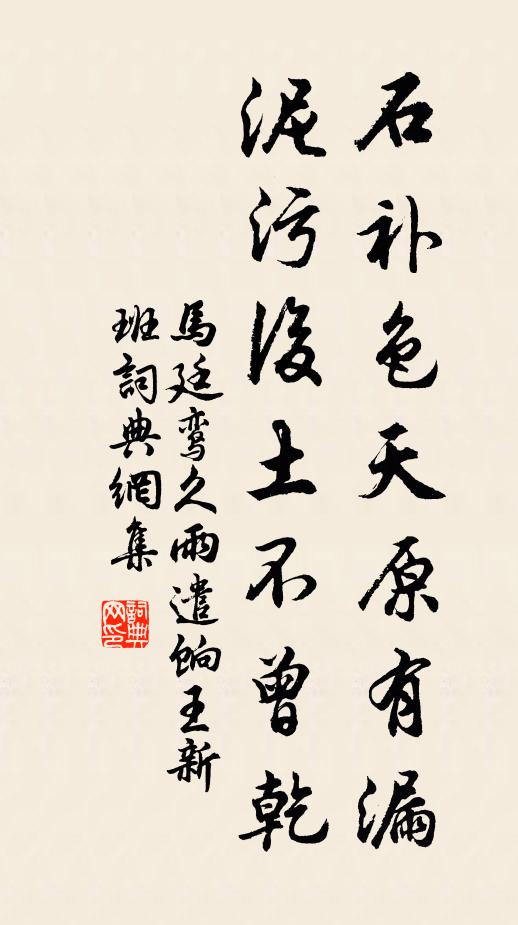 石补色天原有漏
泥污後土不曾乾
馬廷鸾久雨遣餉王新
班詞典網集
詞典网印